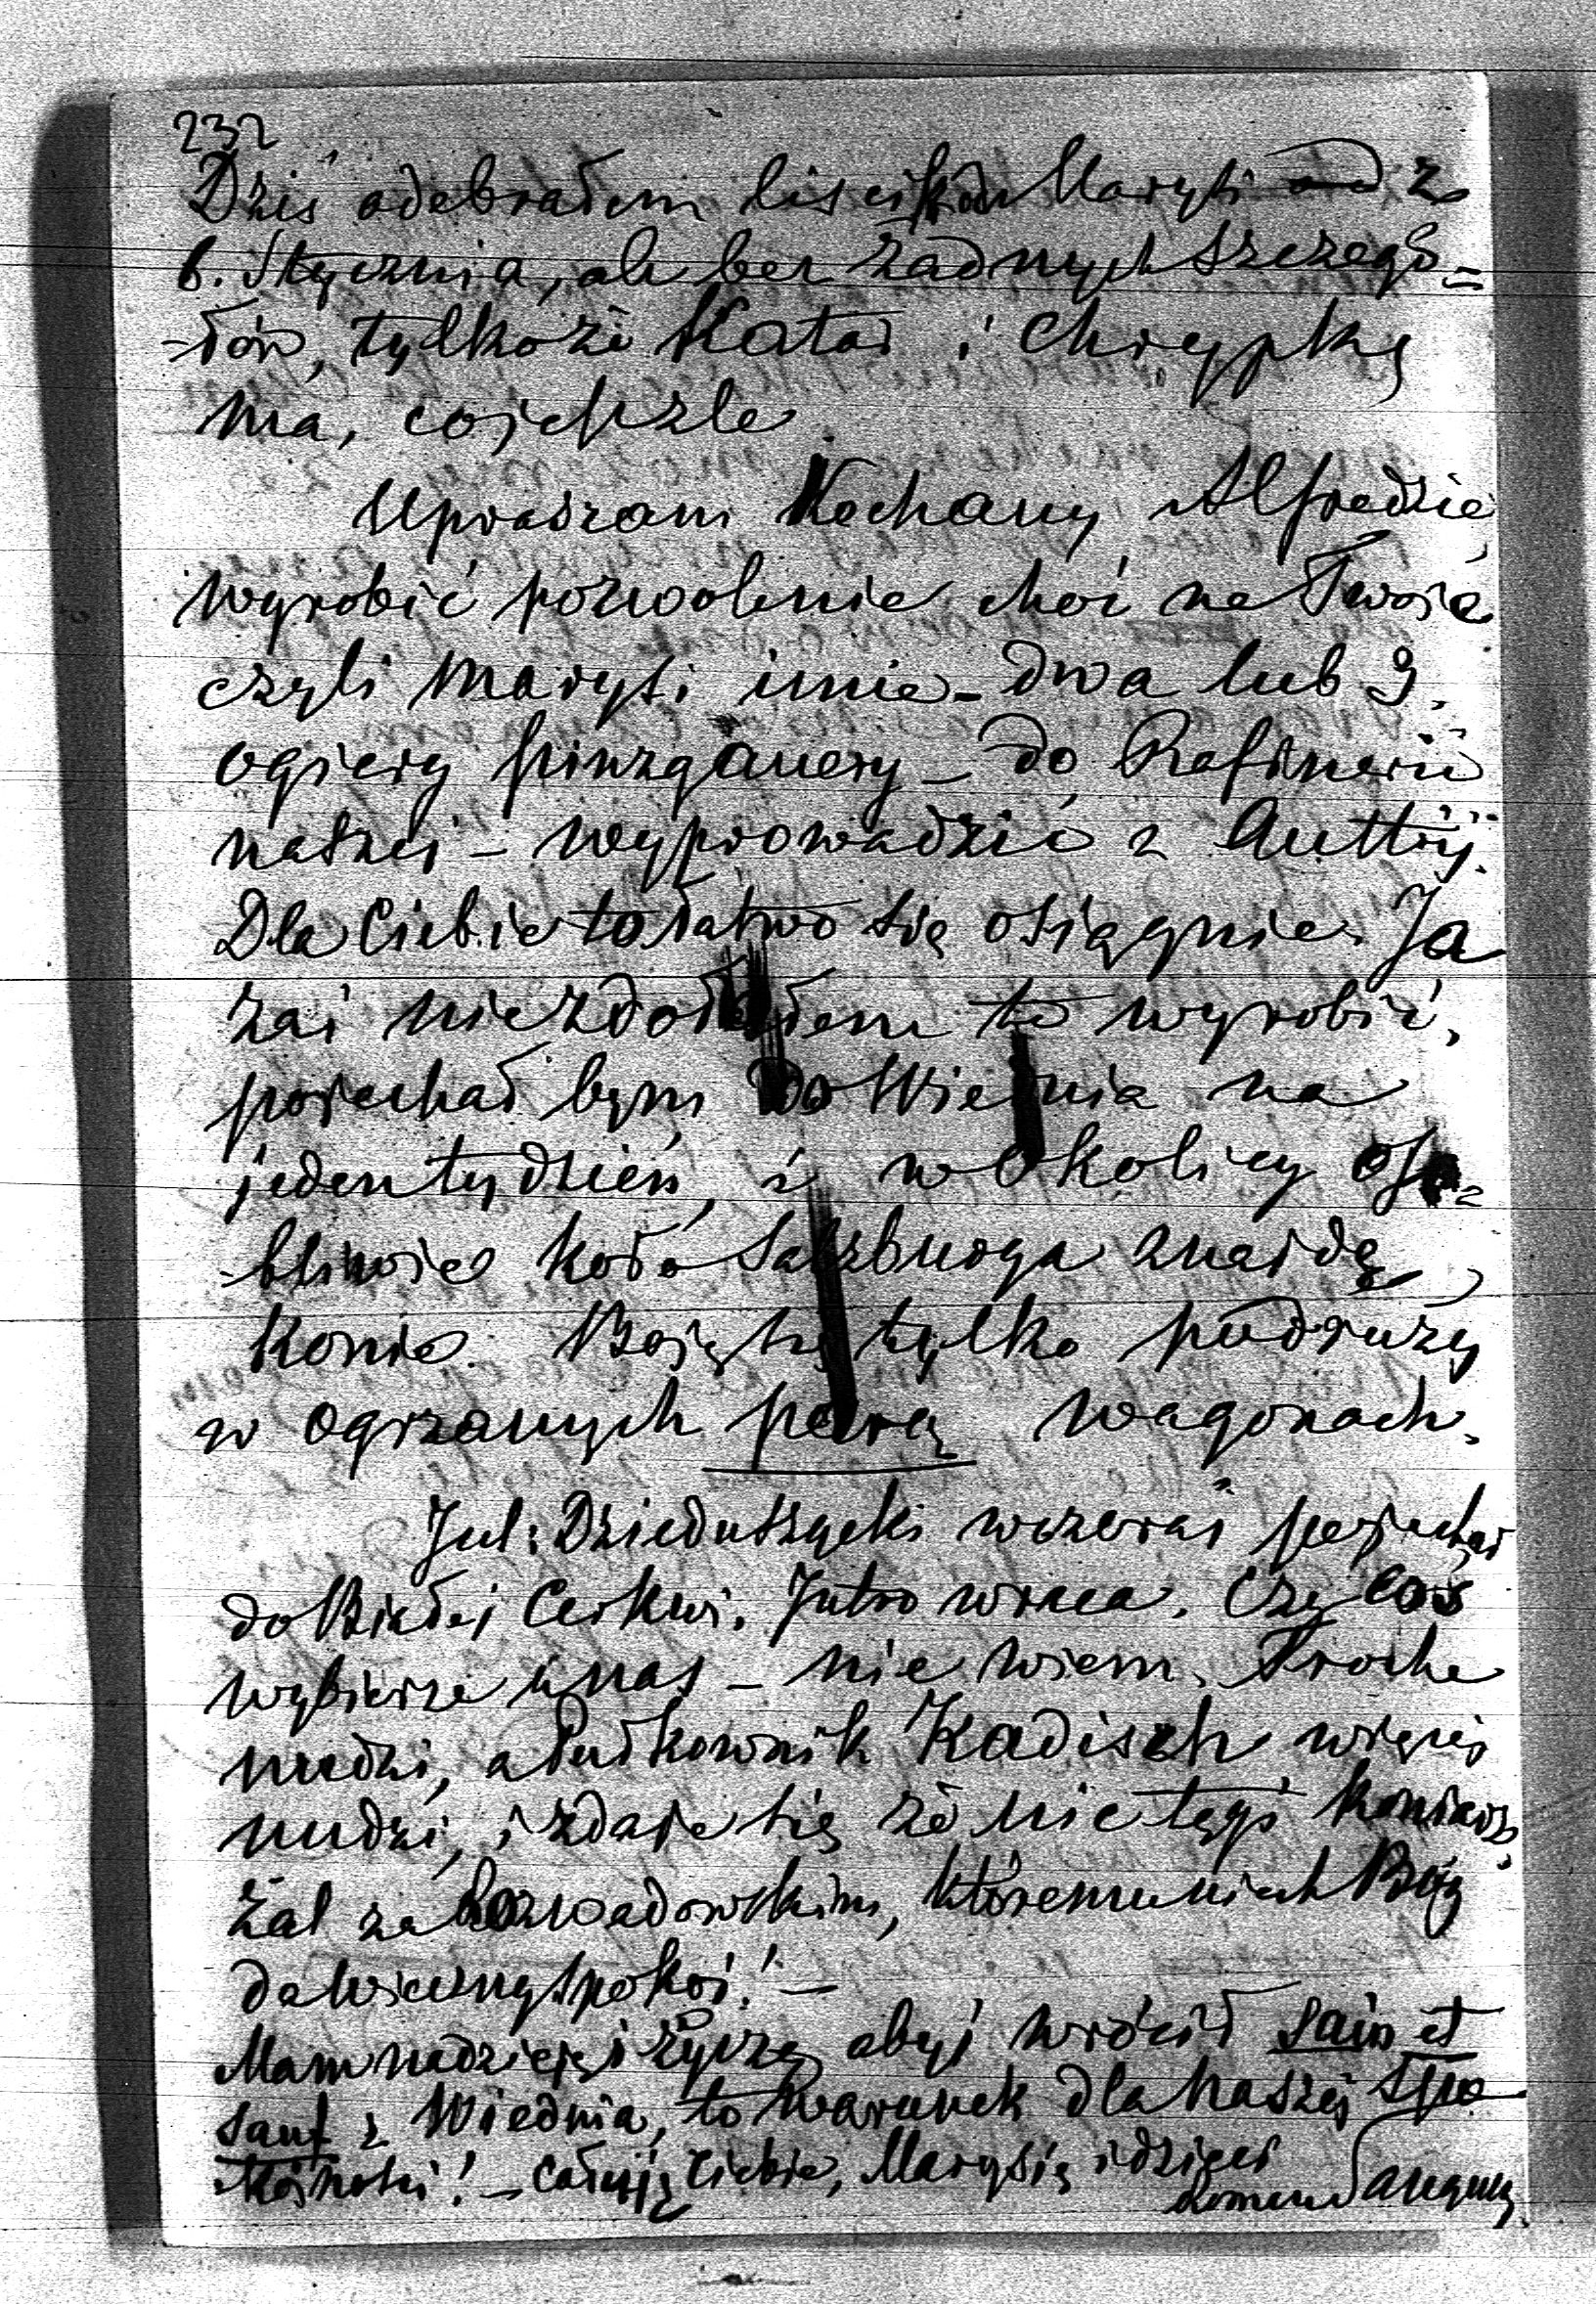 232
Dziś odebrałem liścik od Marysi od z
6. Stycznia, ale bez żadnych szczegó=
-łów, tylko że Katar i Chrypkę
ma, co jest źle.
Upraszam Kochany Alfredzie,
wyrobić pozwolenie choć na Twoje
czyli Marysi imie – dwa lub 3.
ogiery pinzgauery – do Rafinerii
naszej – wyprowadzić z Austryj.
Dla Ciebie to łatwo się osiągnie. Ja
zaś nie zdołałem to wyrobić,
pojechał bym do Wiednia na
jeden tydzień, i w okolicy oso=
-bliwie koło Salzburga znajdę
konie. Boję się tylko podróży
w ogrzanych parą wagonach.
Jul: Dzieduszycki wczoraj pojechał
do Białej Cerkwi. Jutro wraca. Czy coś
wybierze u nas – nie wiem. Troche
nudzi, a Pułkownik Kadisch więcej
nudzi, i zdaje się że nie tęgi koniarz.
Żal za Rozwadowskim, któremu niech Bóg
da wieczny spokój! –
Mam nadzieję i życzę abyś wrócił sain et
sauf z Wiednia, to warunek dla naszej spo
kojności! – Całuję Ciebie, Marysię i dzieci
Roman Sanguszko